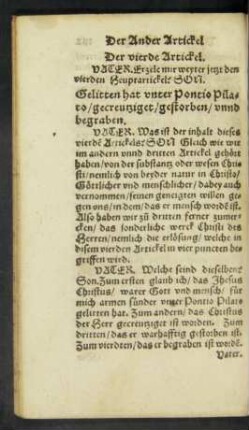 Der Ander Artickel
Der vierde Artickel.
VATER. Erzele mir weyter jetzt den
vierden Heuptartickel? SON.
Gelitten hat vnter Pontio Pila-
to/gecreutziget/gestorben/vnnd
begraben.
VATER. Was ist der inhalt dieses
vierdē Artickels? SON Gleich wie wir
im andern vnnd dritten Artickel gehört
haben/von der substantz oder wesen Chri
sti/nemlich von beyder natur in Christo/
Göttlicher vnd menschlicher/dabey auch
vernommen/seinen geneigten willen ge-
gen vns/in dem/das er mensch wordē ist.
Also haben wir zů dritten ferner zumer-
cken/das sonderliche werck Christi des
Herren/nemlich die erlösung/welche in
diesem vierden Artickel in vier puncten be
griffen wird.
VATER. Welche seind dieselben?
Son. Zum ersten glaub ich/das Jhesus
Christus/warer Gott vnd mensch/für
mich armen sünder vnter Pontio Pilato
gelitten hat. Zum andern/das Christus
der Herr gecreutziget ist worden. Zum
dritten/das er warhafftig gestorben ist.
Zum vierdten/das er begraben ist wordē.
Vater.